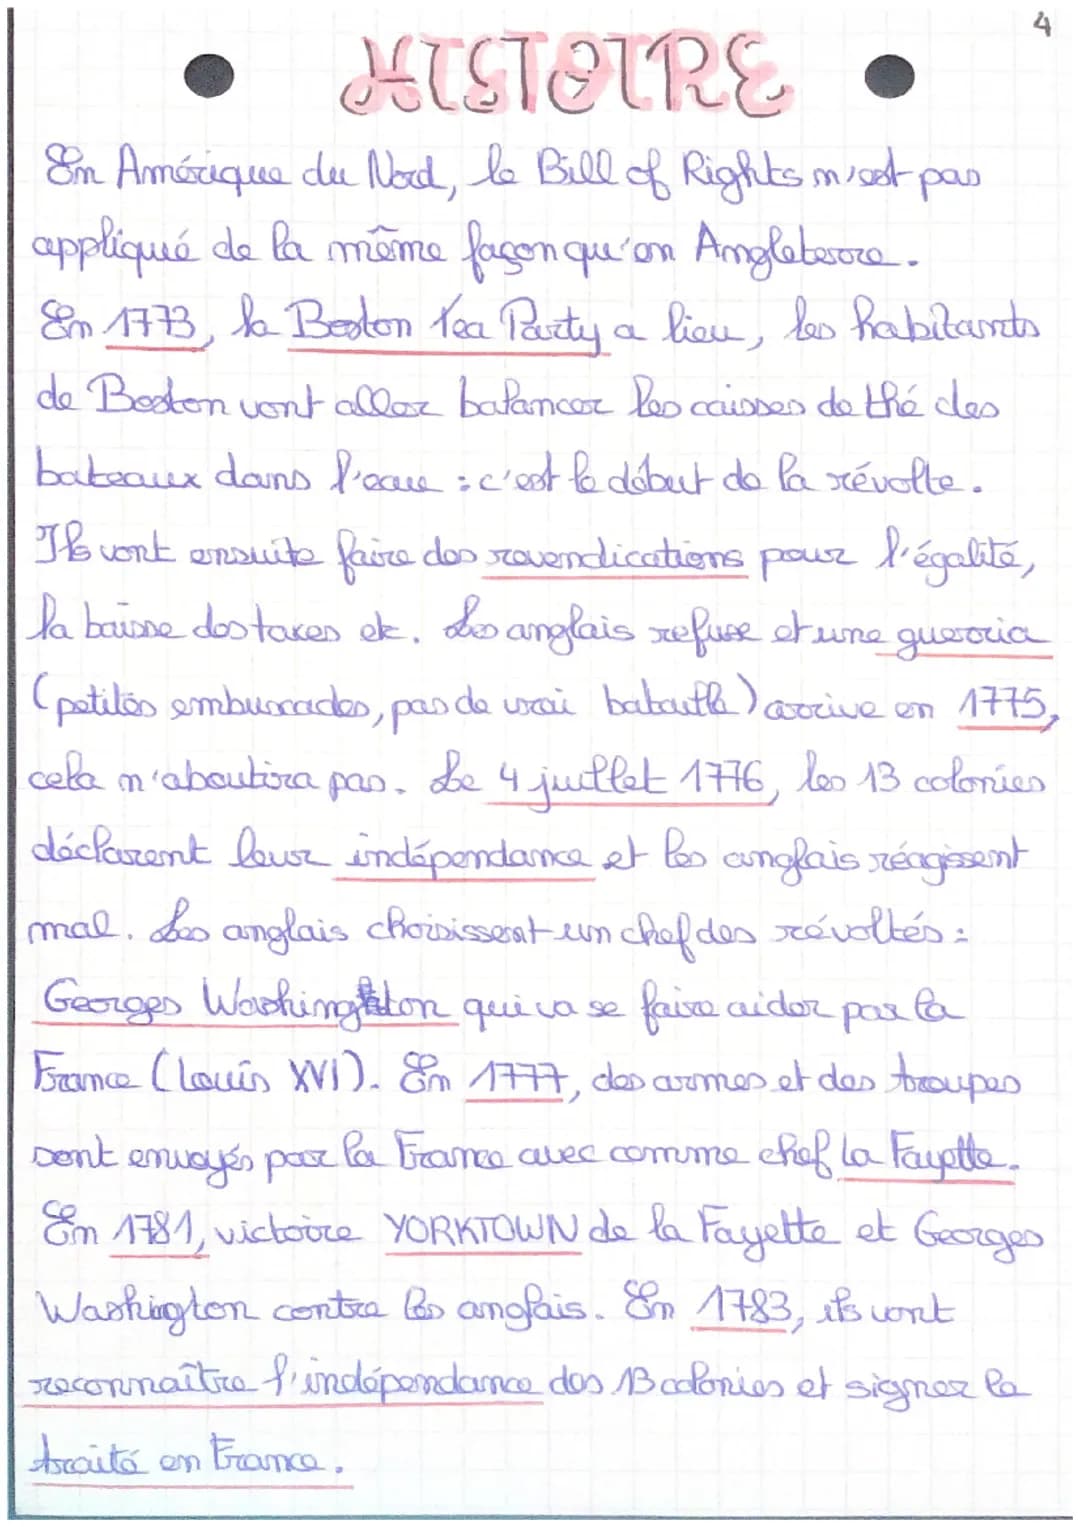 4
HISTOIRE
En Amérique du Nord, le Bill of Rights n'est pas
appliqué de la même façon qu'en Angleterre.
En 1773, la Boston Tea Party a lieu, les habitants
de Boston vont aller balancer les caisses de thé des
bateaux dans l'eau : c'est le début de la révolte.
Ils vont ensuite faire des revendications pour l'égalité,
la baisse des taxes etc. Les anglais refuse et une gueroria
(petites embuscades, pas de vrai bataille) arrive en 1775,
cela n'aboutira pas. Le 4 juillet 1776, les 13 colonies
déclarent leur indépendance et les anglais réagissent
mal. Les anglais choisissent un chef des révoltés :
Georges Washington qui va se faire aider par la
France (Louis XVI). En 1777, des armes et des troupes
sont envoyés par la France avec comme chef La Fayette.
En 1781, victoire YORKTOWN de la Fayette et Georges
Washington contre les anglais. En 1783, ils vont
reconnaître l'indépendance des 13 colonies et signer le
traité en France.